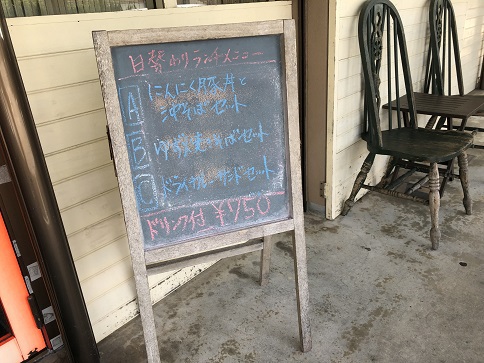 日替わりランチメニュー
A にんにく豚丼と
沖そばセット
B ゆし焼そばセット
C ドライカレーサンドセット
ドリンク付 ¥750